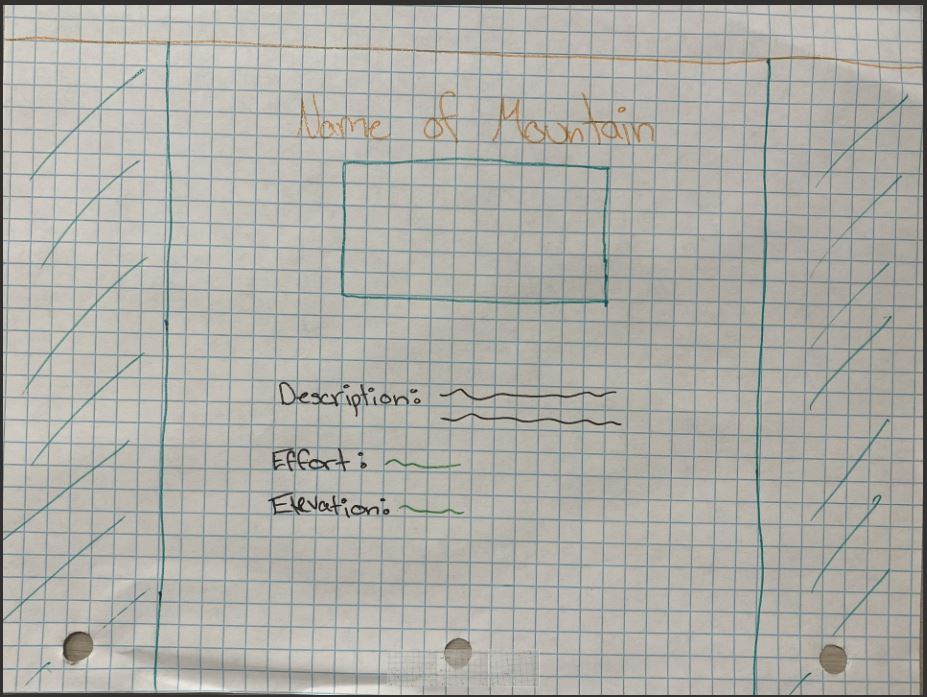 Name of Mountain
Description:
Effort:
Elevation: